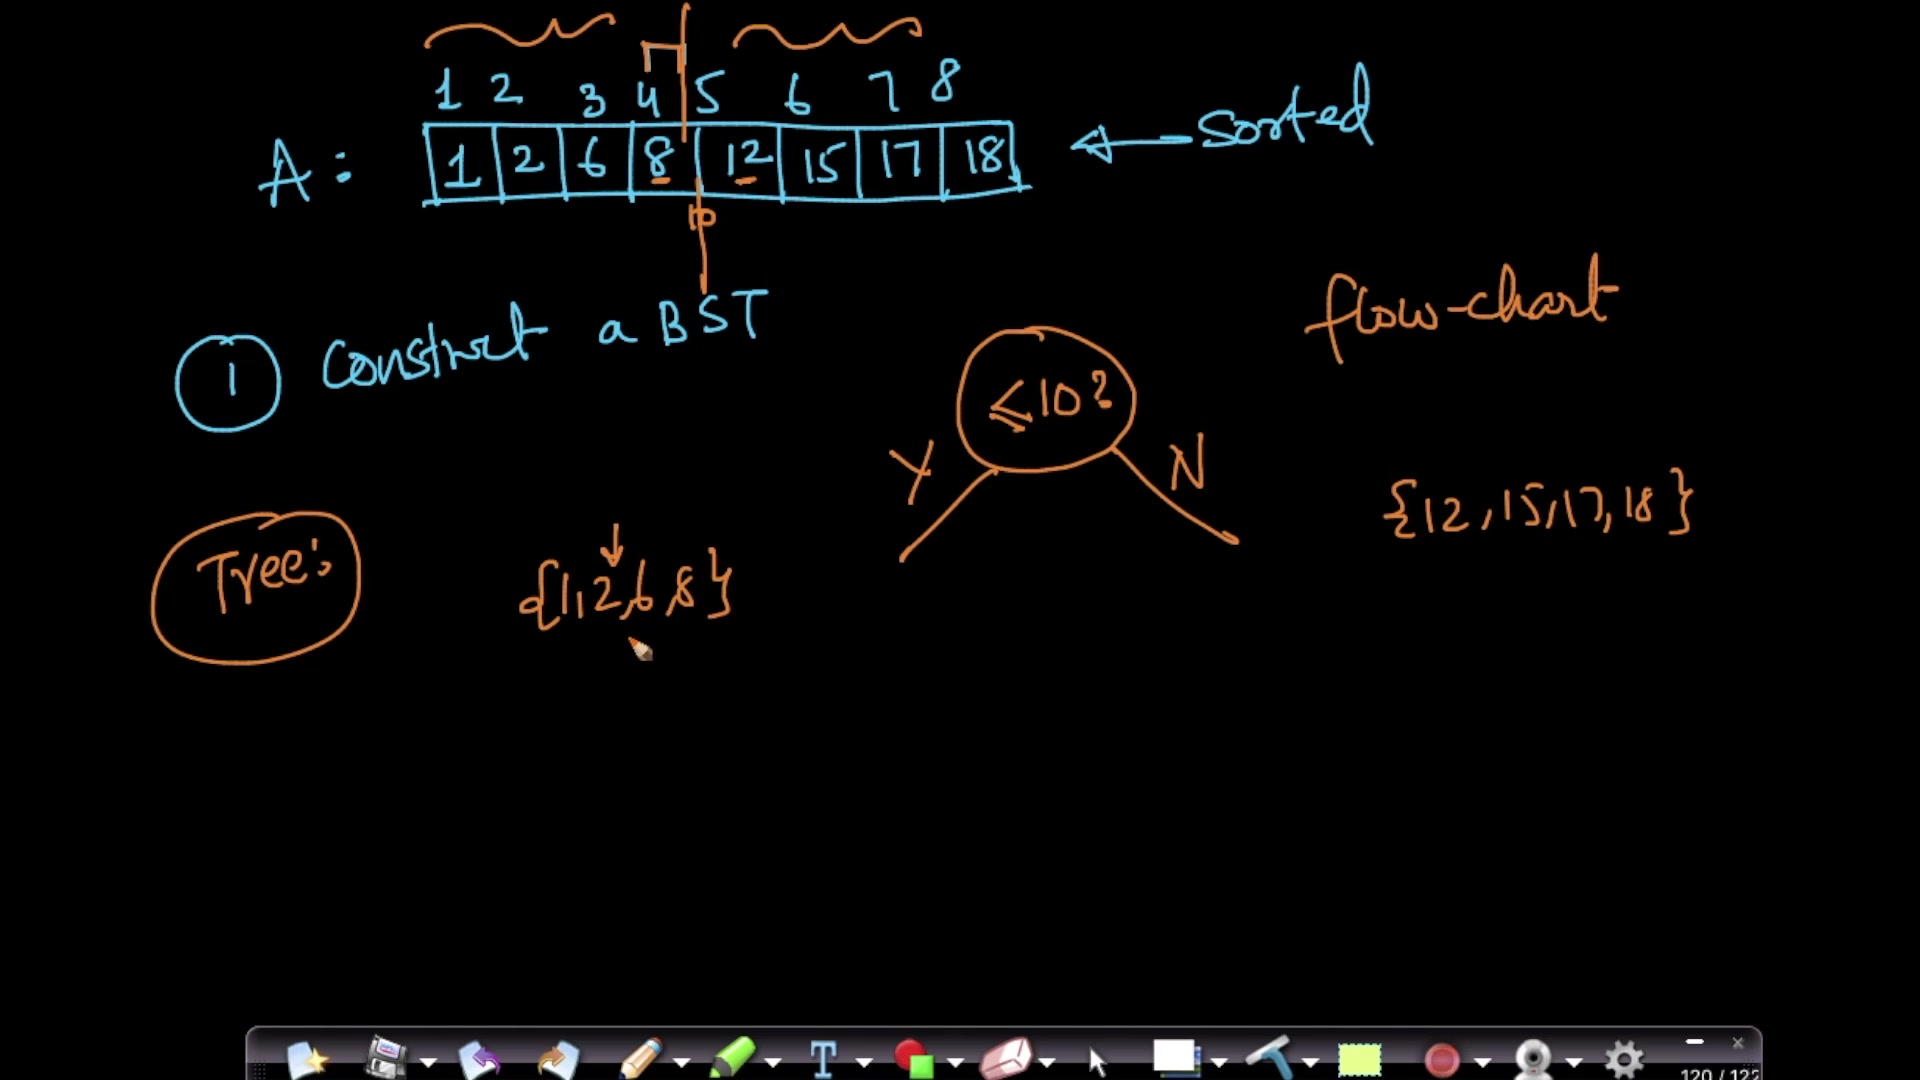 1 2 3 4 5 6 7 8
A: 1 2 6 8 12 15 17 18 Sorted
10
1 Construct a BST
flow-chart
≤10?
Y N
{12,15,17,18}
Tree:
{1,2,6,8}
T
120 / 122